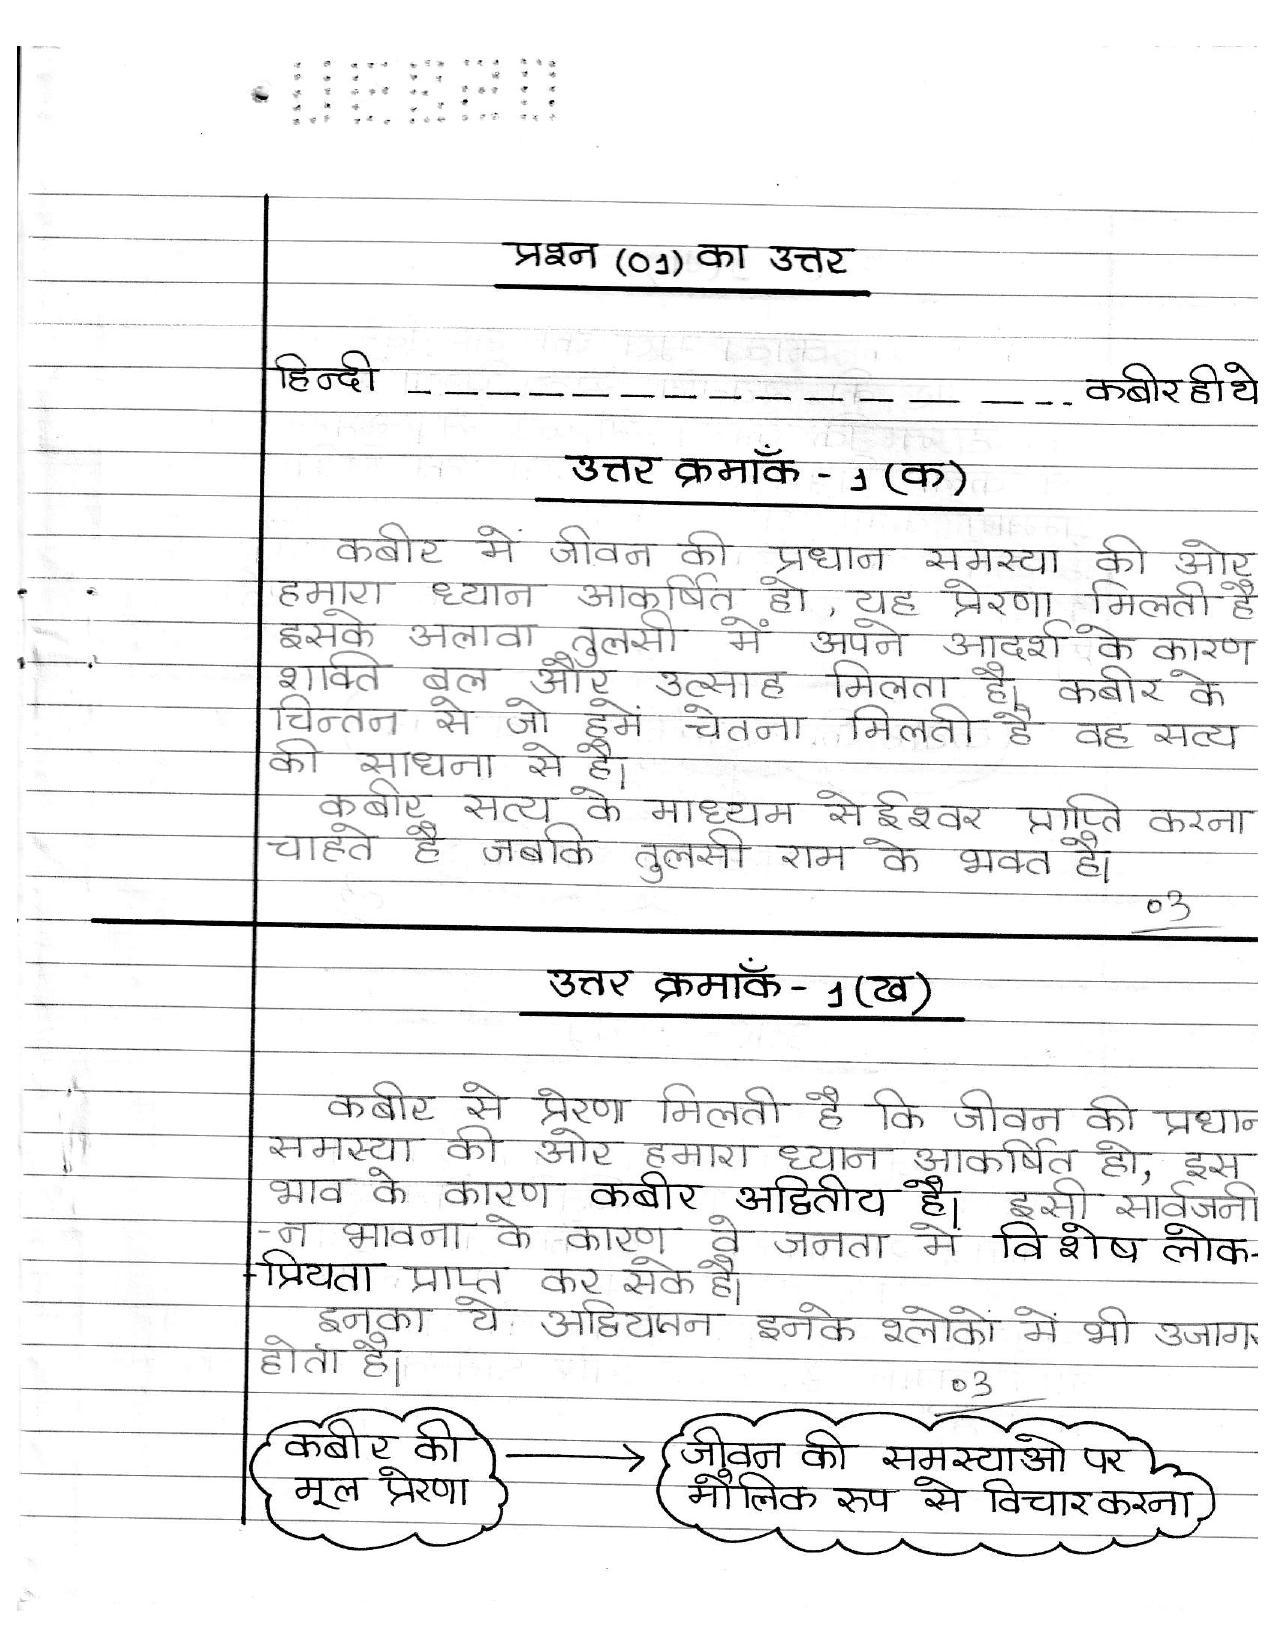 प्रश्न (01) का उत्तर
हिन्दी _ _ _ _ _ _ _ _ _ _ _ _ _ _ _ _ _ _ कबीर ही थे
उत्तर क्रमाँक - 1 (क)
कबीर में जीवन की प्रधान समस्या की ओर
हमारा ध्यान आकर्षित हो, यह प्रेरणा मिलती है
इसके अलावा तुलसी में अपने आदर्श के कारण
शक्ति बल और उत्साह मिलता है। कबीर के
चिन्तन से जो हमें चेतना मिलती है वह सत्य
की साधना से है।
कबीर सत्य के माध्यम से ईश्वर प्राप्ति करना
चाहते है जबकि तुलसी राम के भक्त है।
03
उत्तर क्रमाँक - 1 (ख)
कबीर से प्रेरणा मिलती है कि जीवन की प्रधान
समस्या की ओर हमारा ध्यान आकर्षित हो, इस
भाव के कारण कबीर अद्वितीय है। इसी सार्वजनी
-न भावना के कारण वे जनता मे विशेष लोक-
प्रियता प्राप्त कर सके है।
इनका ये इनके श्लोकों में भी उजागर
होता है।
03
कबीर की → जीवन की समस्याओ पर
मूल प्रेरणा मौलिक रुप से विचार करना